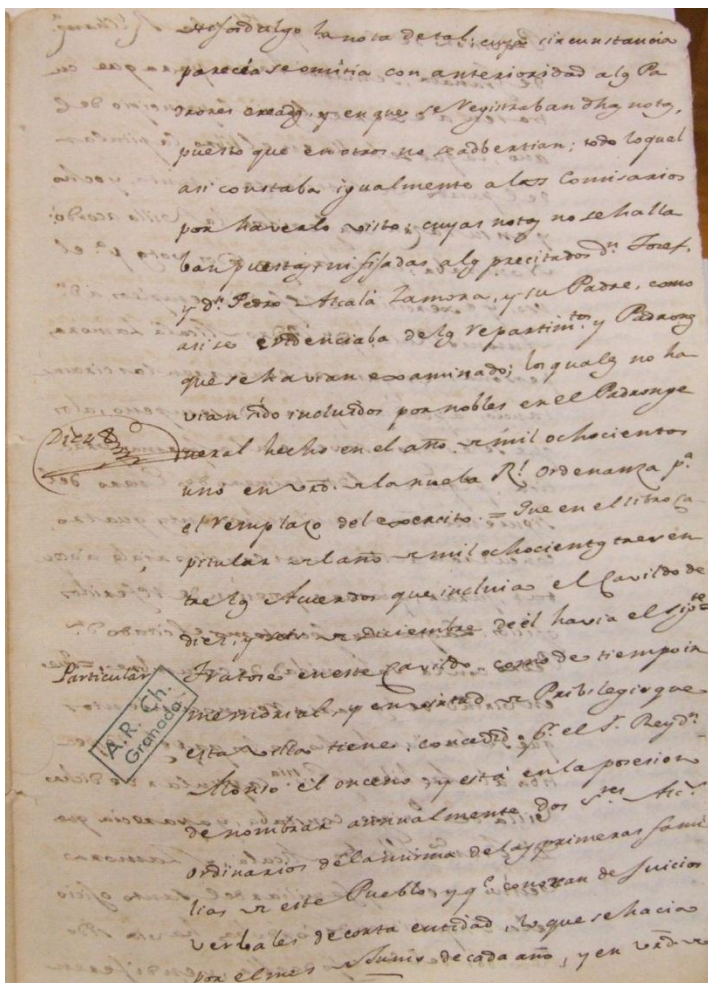 Hijodalgo la nota de tal; cuya circunstancia
parecia se omitia con anterioridad a los Pa
drones creados, y en que se registraban dhas notas,
puesto que en otros no se adbertian; todo lo qual
asi constaba igualmente a los Comisarios
por haverlo visto; cuyas notas no se halla
ban puestas, ni fijadas a los precitados Dn. Josef,
y Dn. Pedro Alcalá Zamora, y su Padre, como
asi se evidenciaba de los repartimtos. y Padrones
que se havian examinado; los quales no ha
vian sido incluidos por nobles en el Padron ge
neral hecho en el año de mil ochocientos
uno en vrd. de la nueba Rl. Ordenanza pa.
el reemplazo del exercito. = Que en el libro ca
pitular del año de mil ochocientos tres en
tre los Acuerdos que incluia el Cavildo de
diez y de diciembre de él havia el sigte.
Particular
Tratose en este Cavildo, como de tiempo in
memorial, y en virtud de Pribilegio que
esta villa tiene, concedido pr. el Sr. Rey Dn.
Alonso el onceno, y está en la posesion
de nombrar annualmente dos Sres. Alcs.
Ordinarios de la misma de las primeras fami
lias de este Pueblo, y qe. conozcan de Juicios
verbales de corta entidad, lo que se hacia
por el mes de Junio de cada año, y en vrd. de
A.R. Ch.
Granada